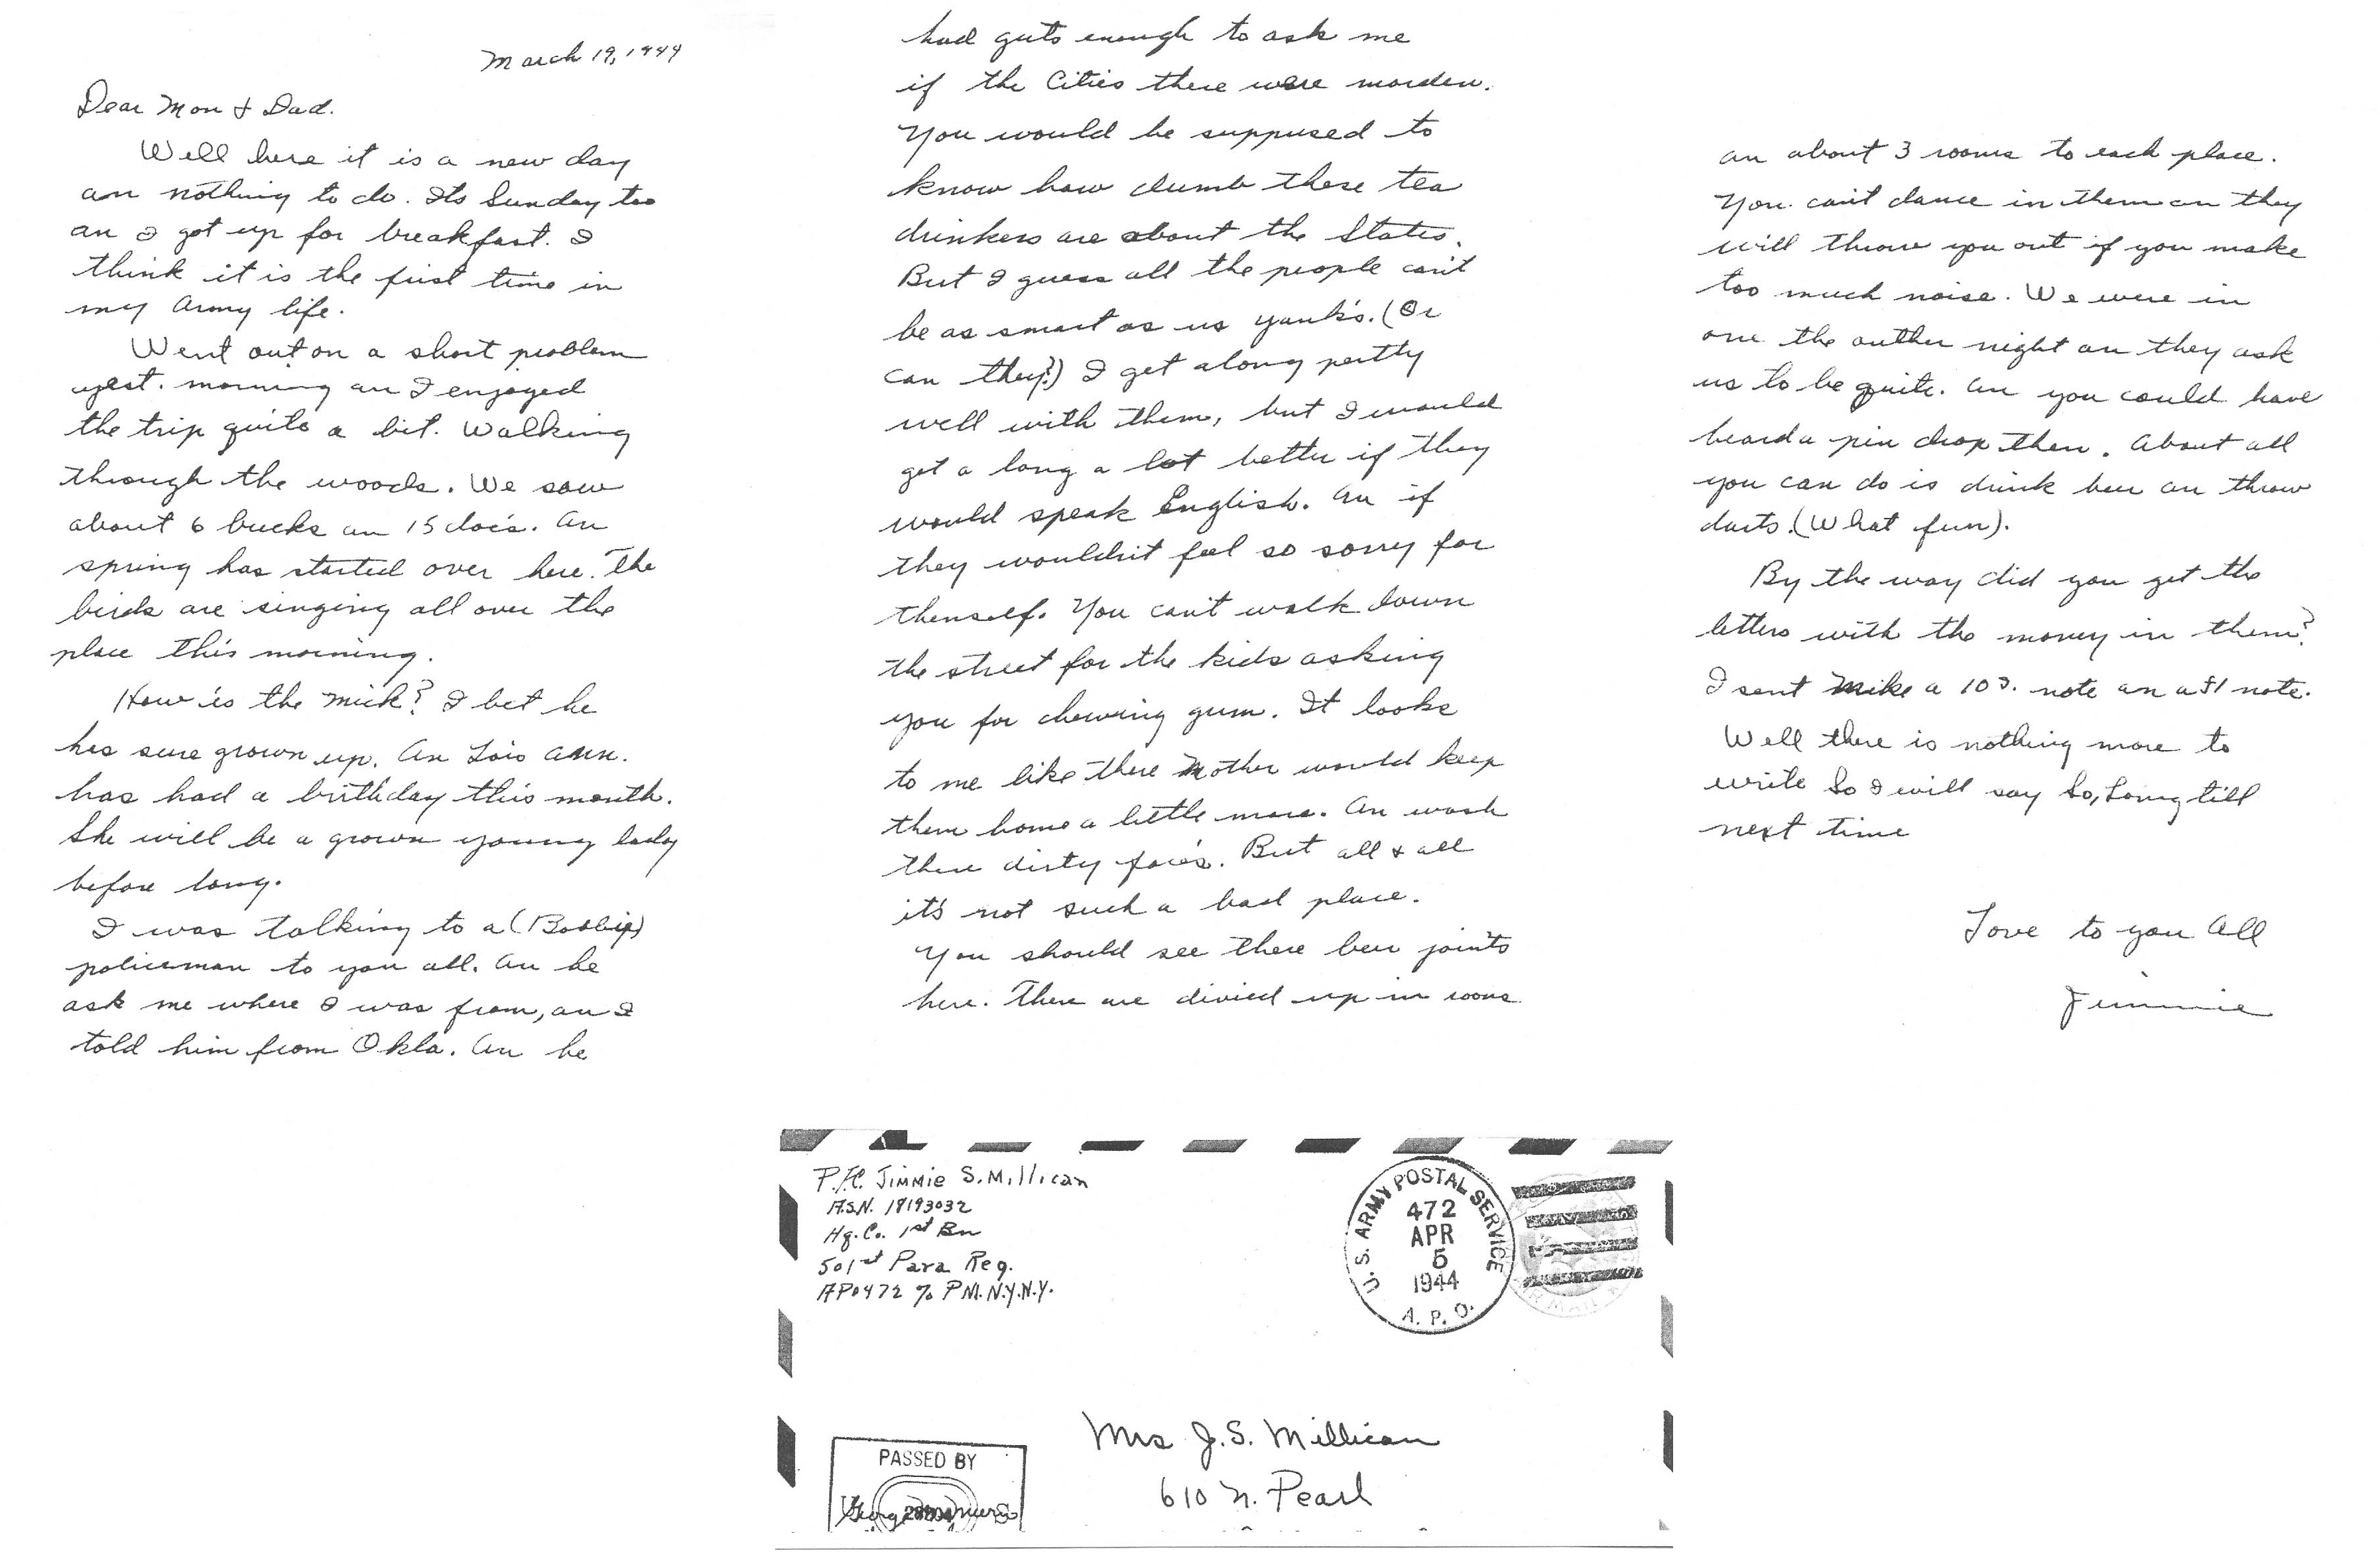 March 19, 1944
Dear Mon & Dad.
Well here it is a new day
an nothing to do. Its Sunday too
an I got up for breakfast. I
think it is the first time in
my Army life.
Went out on a short problem
yest. morning an I enjoyed
the trip quite a bit. Walking
through the woods. We saw
about 6 bucks an 15 doe's. An
spring has started over here. The
birds are singing all over the
place this morning.
How is the Mick? I bet he
has sure grown up. An Lois Ann.
has had a birthday this month.
She will be a grown young lady
before long.
I was talking to a (Bobbie)
policeman to you all. An he
ask me where I was from, an I
told him from Okla. An he
had guts enough to ask me
if the Cities there were morden.
You would be suppused to
know how dumb these tea
drinkers are about the States.
But I guess all the people can't
be as smart as us yank's. (Or
can they?) I get along pertty
well with them, but I would
get a long a lot better if they
would speak English. An if
they wouldn't feel so sorry for
themself. You can't walk down
the street for the kids asking
you for chewing gum. It looks
to me like there Mother would keep
them home a little more. An wash
there dirty face's. But all & all
it's not such a bad place.
You should see there beer joints
here. There are divied up in rooms
an about 3 rooms to each place.
You can't dance in them an they
will throw you out if you make
too much noise. We were in
one the outher night an they ask
us to be quite. An you could have
heard a pin drop then. About all
you can do is drink beer an throw
darts. (What fun).
By the way did you get the
letters with the money in them?
I sent Mike a 10 S. note an a $1 note.
Well there is nothing more to
write So I will say So, Long till
next time
Love to you All
Jimmie
P.F.C. Jimmie S. Millican
A.S.N. 18193032
Hq. Co. 1st Bn
501st Para Reg.
APO 472 % P.M. N.Y. N.Y.
U.S. ARMY POSTAL SERVICE
472
APR
5
1944
A.P.O.
Mrs J.S. Millican
610 N. Pearl
PASSED BY